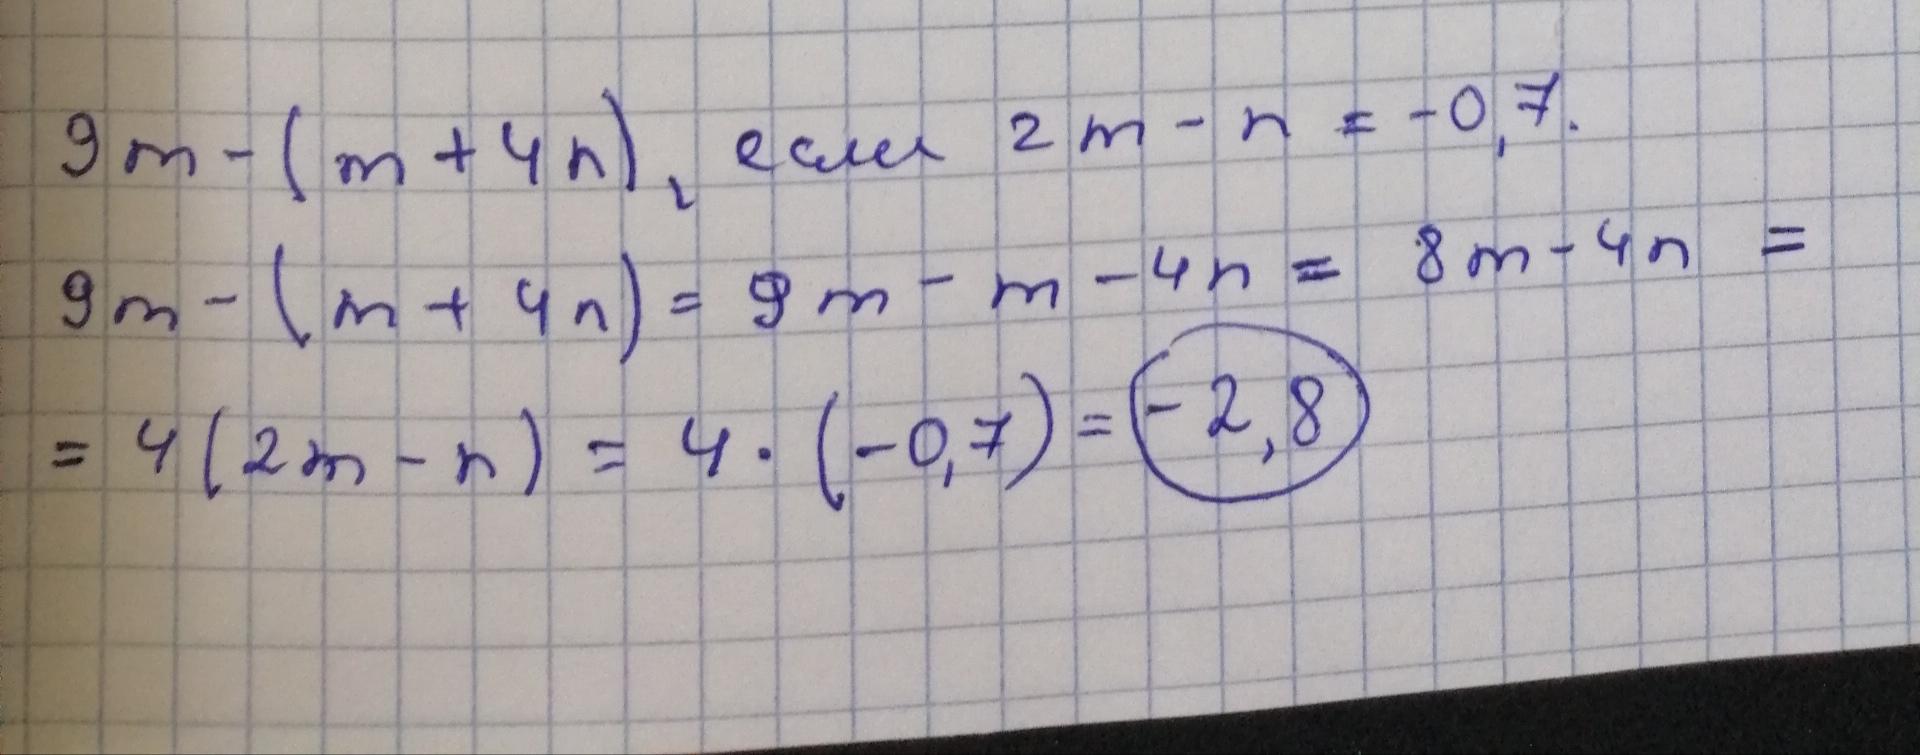 9m - (m + 4n), если 2m - n = -0,7.
9m - (m + 4n) = 9m - m - 4n = 8m - 4n =
= 4(2m - n) = 4 · (-0,7) = -2,8